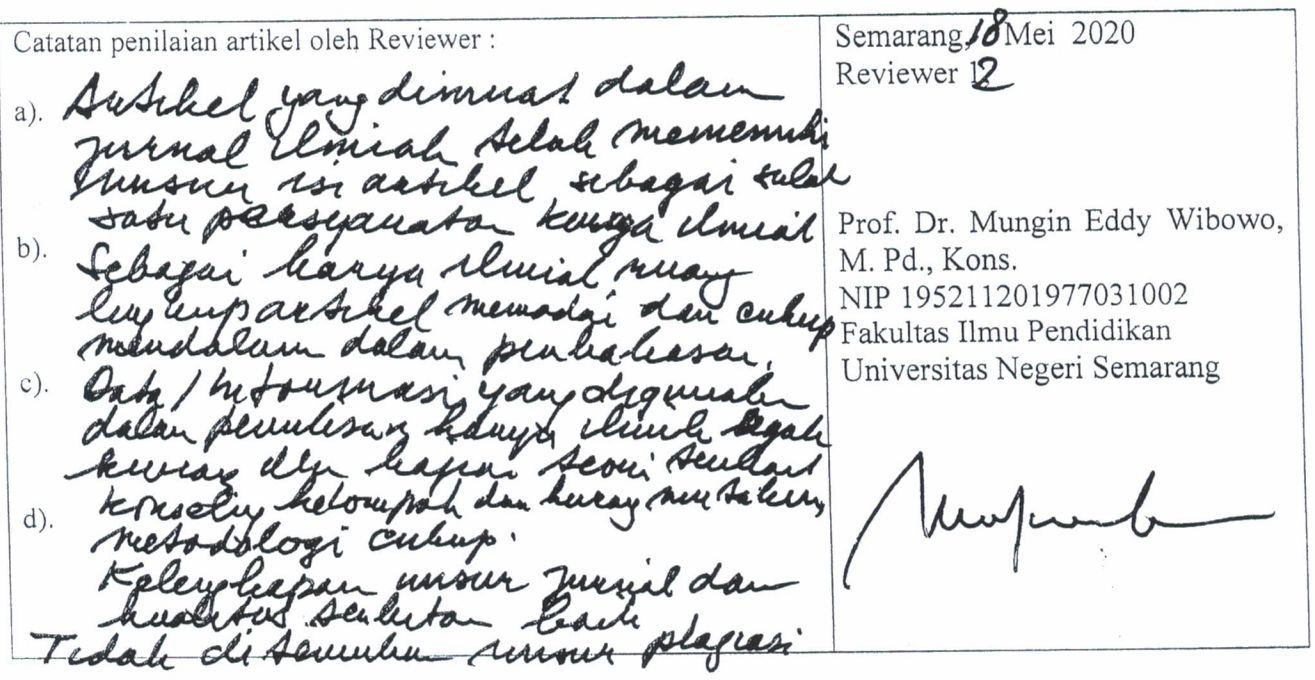 Catatan penilaian artikel oleh Reviewer :
a). Artikel yang dimuat dalam
jurnal ilmiah telah memenuhi
unsur isi artikel sebagai salah
satu persyaratan karya ilmiah
b). Sebagai karya ilmiah ruang
lingkup artikel memadai dan cukup
mendalam dalam pembahasan.
c). Data / informasi yang digunakan
dalam penulisan karya ilmiah agak
kurang dlm kajian teori tentang
konseling kelompok dan kurang
d). metodologi cukup.
Kelengkapan unsur jurnal dan
kualitas terbitan baik
Tidak ditemukan unsur plagiasi
Semarang, 18 Mei 2020
Reviewer 12
Prof. Dr. Mungin Eddy Wibowo,
M. Pd., Kons.
NIP 195211201977031002
Fakultas Ilmu Pendidikan
Universitas Negeri Semarang